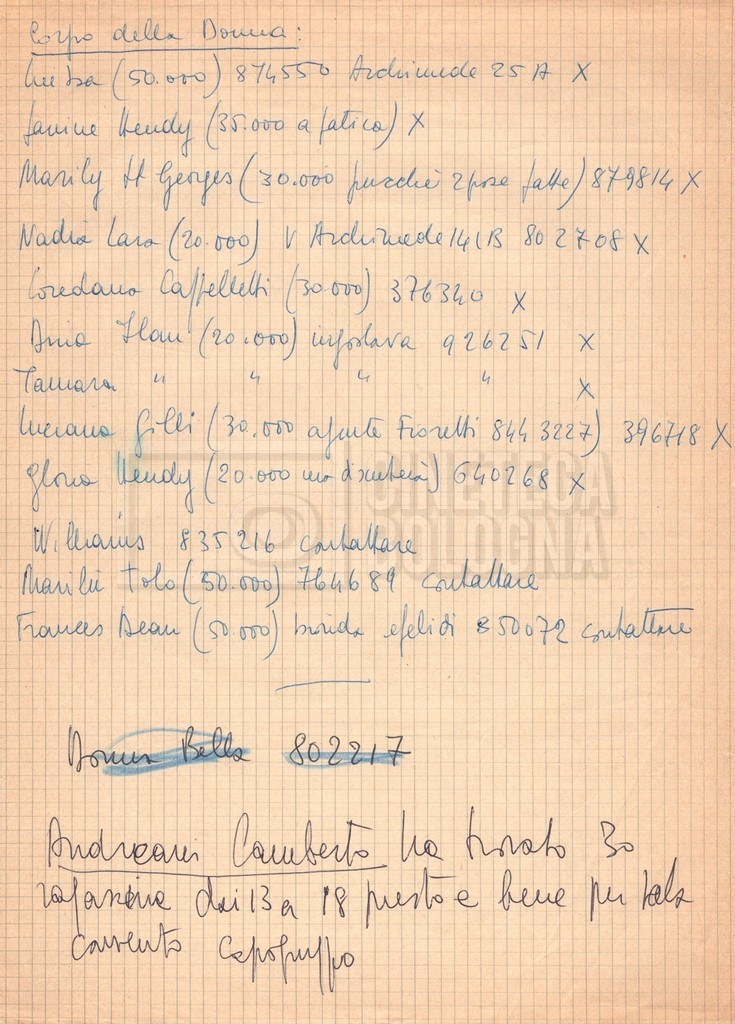 Corpo della Donna:
Luisa (50.000) 874550 Archimede 25 A X
Janine Hendy (35.000 a fatica) X
Marily St Georges (30.000 purchè 2 pose fatte) 879814 X
Nadia Lara (20.000) V Archimede 141B 802708 X
Loredana Cappelletti (30.000) 376340 X
Ania (20.000) 926251 X
Tamara " " " " X
Luciana Gilli (30.000 agente Fioretti 8443227) 396718 X
Gloria Hendy (20.000 ma discuterà) 640268 X
Williams 835216 contattare
CINETECA
BOLOGNA
Marilù Tolo (50.000) 764689 contattare
Frances Dean (50.000) bionda efelidi 850072 contattare
Donna Bella 802217
Andreani Lamberto ha trovato 30
ragazzine dai 13 a 18 presto e bene per sala
convento capogruppo